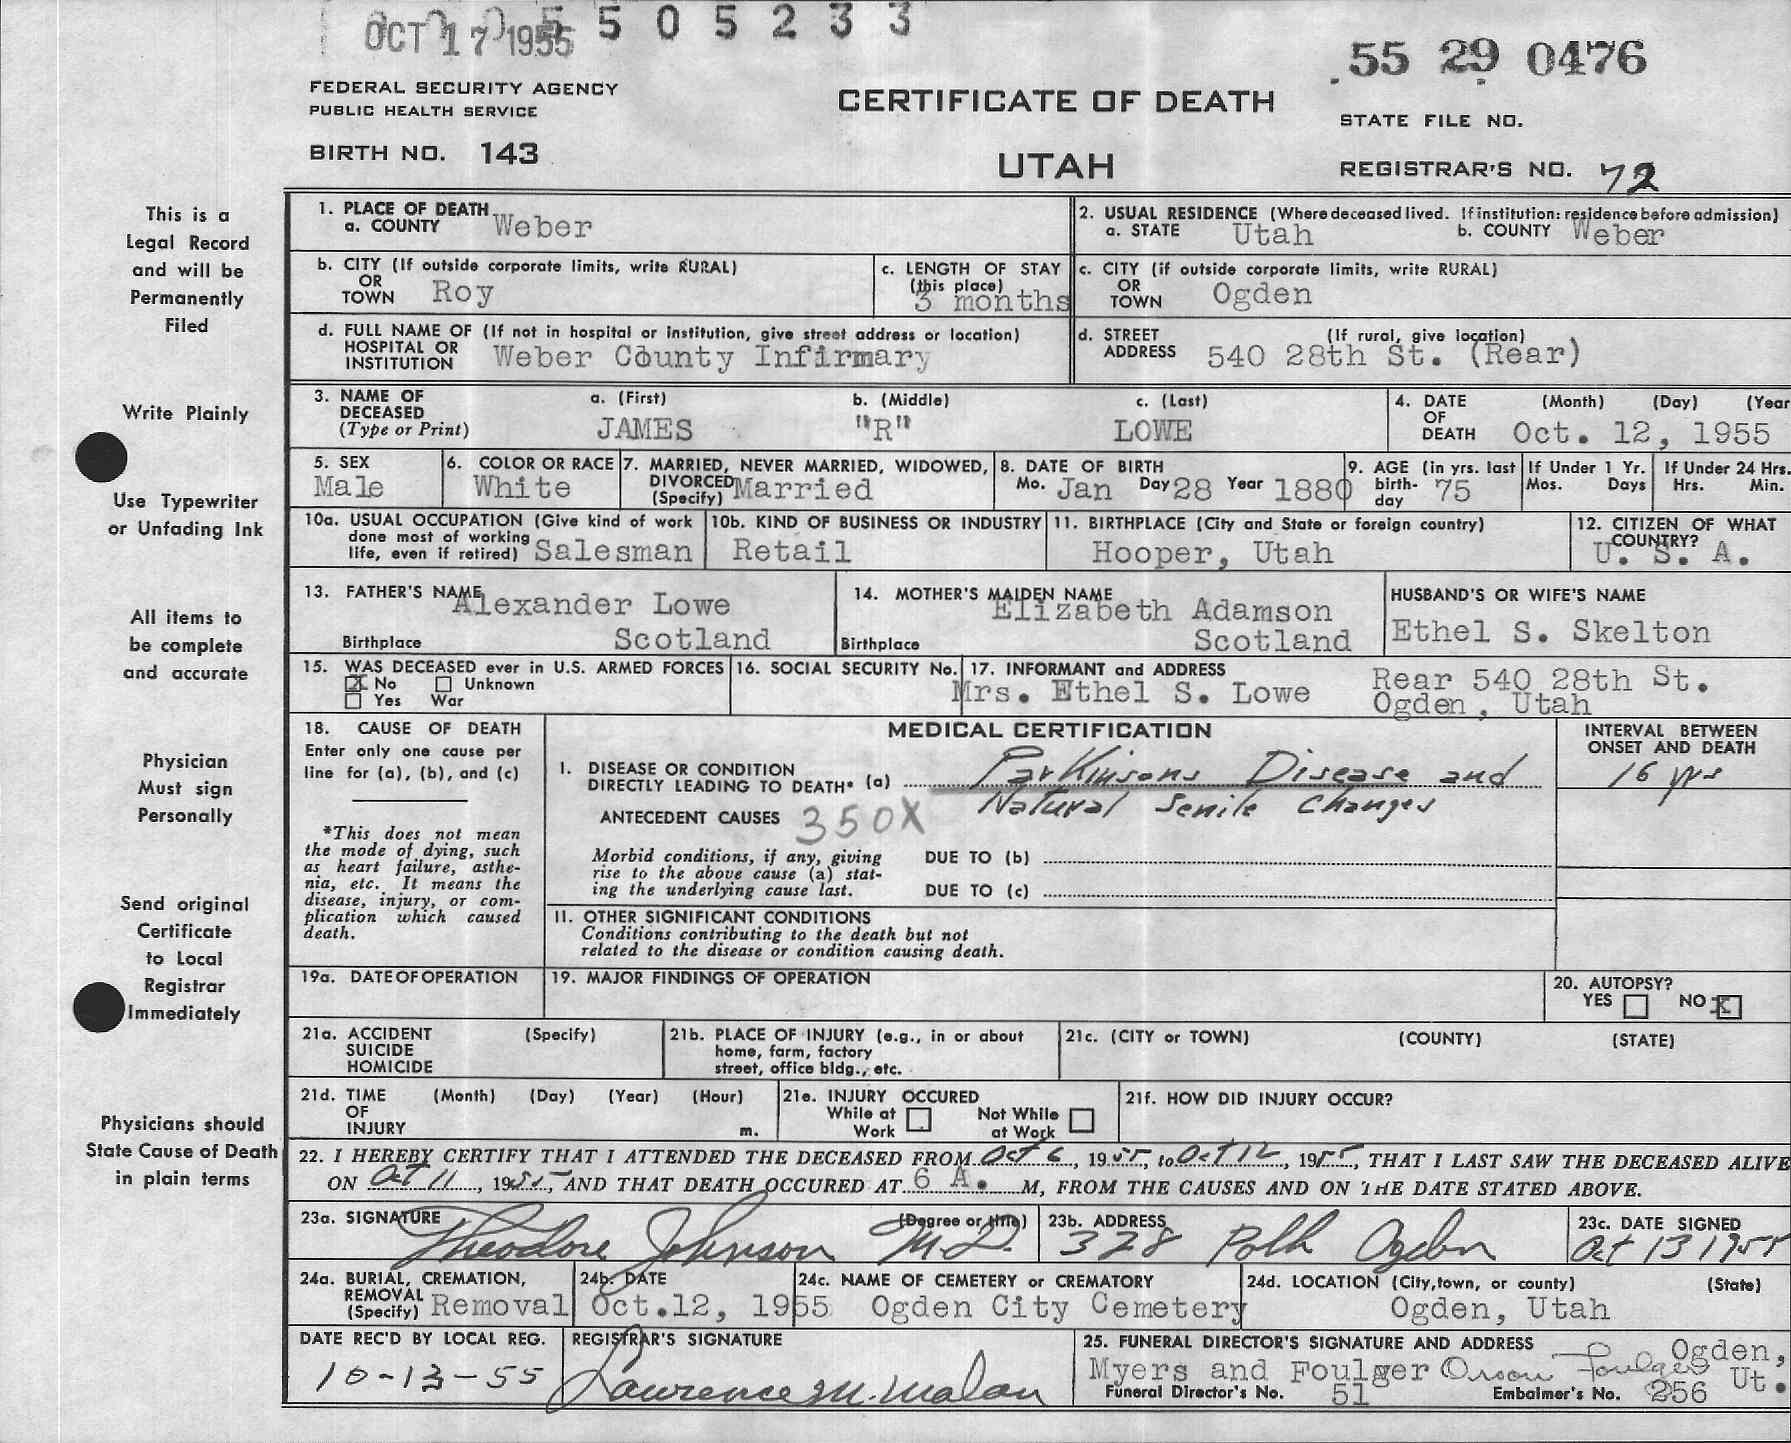 OCT 17 1955 5505233
55 29 0476
FEDERAL SECURITY AGENCY
PUBLIC HEALTH SERVICE
CERTIFICATE OF DEATH
STATE FILE NO.
BIRTH NO. 143
UTAH
REGISTRAR'S NO. 72
This is a
Legal Record
and will be
Permanently
Filed
Write Plainly
Use Typewriter
or Unfading Ink
All items to
be complete
and accurate
Physician
Must sign
Personally
Send original
Certificate
to Local
Registrar
Immediately
Physicians should
State Cause of Death
in plain terms
1. PLACE OF DEATH
a. COUNTY Weber
2. USUAL RESIDENCE (Where deceased lived. If institution: residence before admission)
a. STATE Utah b. COUNTY Weber
b. CITY (If outside corporate limits, write RURAL)
OR
TOWN Roy
c. LENGTH OF STAY
(this place)
3 months
c. CITY (if outside corporate limits, write RURAL)
OR
TOWN Ogden
d. FULL NAME OF (If not in hospital or institution, give street address or location)
HOSPITAL OR
INSTITUTION Weber County Infirmary
d. STREET (If rural, give location)
ADDRESS 540 28th St. (Rear)
3. NAME OF
DECEASED
(Type or Print)
a. (First) b. (Middle) c. (Last)
JAMES "R" LOWE
4. DATE (Month) (Day) (Year
OF
DEATH Oct. 12, 1955
5. SEX
Male
6. COLOR OR RACE
White
7. MARRIED, NEVER MARRIED, WIDOWED,
DIVORCED
(Specify) Married
8. DATE OF BIRTH
Mo. Jan Day 28 Year 1880
9. AGE (in yrs. last
birth-
day 75
If Under 1 Yr.
Mos. Days
If Under 24 Hrs.
Hrs. Min.
10a. USUAL OCCUPATION (Give kind of work
done most of working
life, even if retired) Salesman
10b. KIND OF BUSINESS OR INDUSTRY
Retail
11. BIRTHPLACE (City and State or foreign country)
Hooper, Utah
12. CITIZEN OF WHAT
COUNTRY?
U. S. A.
13. FATHER'S NAME Alexander Lowe
Birthplace Scotland
14. MOTHER'S MAIDEN NAME
Elizabeth Adamson
Birthplace Scotland
HUSBAND'S OR WIFE'S NAME
Ethel S. Skelton
15. WAS DECEASED ever in U.S. ARMED FORCES
X No Unknown
Yes War
16. SOCIAL SECURITY No.
17. INFORMANT and ADDRESS
Mrs. Ethel S. Lowe
Rear 540 28th St.
Ogden, Utah
18. CAUSE OF DEATH
Enter only one cause per
line for (a), (b), and (c)
*This does not mean
the mode of dying, such
as heart failure, asthe-
nia, etc. It means the
disease, injury, or com-
plication which caused
death.
MEDICAL CERTIFICATION
I. DISEASE OR CONDITION
DIRECTLY LEADING TO DEATH* (a) Parkinsons Disease and
Natural Senile Changes
ANTECEDENT CAUSES 350X
Morbid conditions, if any, giving
rise to the above cause (a) stat-
ing the underlying cause last.
DUE TO (b)
DUE TO (c)
INTERVAL BETWEEN
ONSET AND DEATH
16 yrs
II. OTHER SIGNIFICANT CONDITIONS
Conditions contributing to the death but not
related to the disease or condition causing death.
19a. DATE OF OPERATION
19. MAJOR FINDINGS OF OPERATION
20. AUTOPSY?
YES NO X
21a. ACCIDENT (Specify)
SUICIDE
HOMICIDE
21b. PLACE OF INJURY (e.g., in or about
home, farm, factory
street, office bldg., etc.
21c. (CITY or TOWN) (COUNTY) (STATE)
21d. TIME (Month) (Day) (Year) (Hour)
OF
INJURY m.
21e. INJURY OCCURED
While at Work Not While at Work
21f. HOW DID INJURY OCCUR?
22. I HEREBY CERTIFY THAT I ATTENDED THE DECEASED FROM Oct 6, 1955, to Oct 12, 1955, THAT I LAST SAW THE DECEASED ALIVE
ON Oct 11, 1955, AND THAT DEATH OCCURED AT 6 A. M, FROM THE CAUSES AND ON THE DATE STATED ABOVE.
23a. SIGNATURE (Degree or title)
Theodore Johnson M.D.
23b. ADDRESS
328 Polk Ogden
23c. DATE SIGNED
Oct 13 1955
24a. BURIAL, CREMATION,
REMOVAL
(Specify) Removal
24b. DATE
Oct.12, 1955
24c. NAME OF CEMETERY or CREMATORY
Ogden City Cemetery
24d. LOCATION (City, town, or county) (State)
Ogden, Utah
DATE REC'D BY LOCAL REG.
10-13-55
REGISTRAR'S SIGNATURE
Lawrence M. Malan
25. FUNERAL DIRECTOR'S SIGNATURE AND ADDRESS
Myers and Foulger Orson Foulger Ogden, Ut.
Funeral Director's No. 51 Embalmer's No. 256